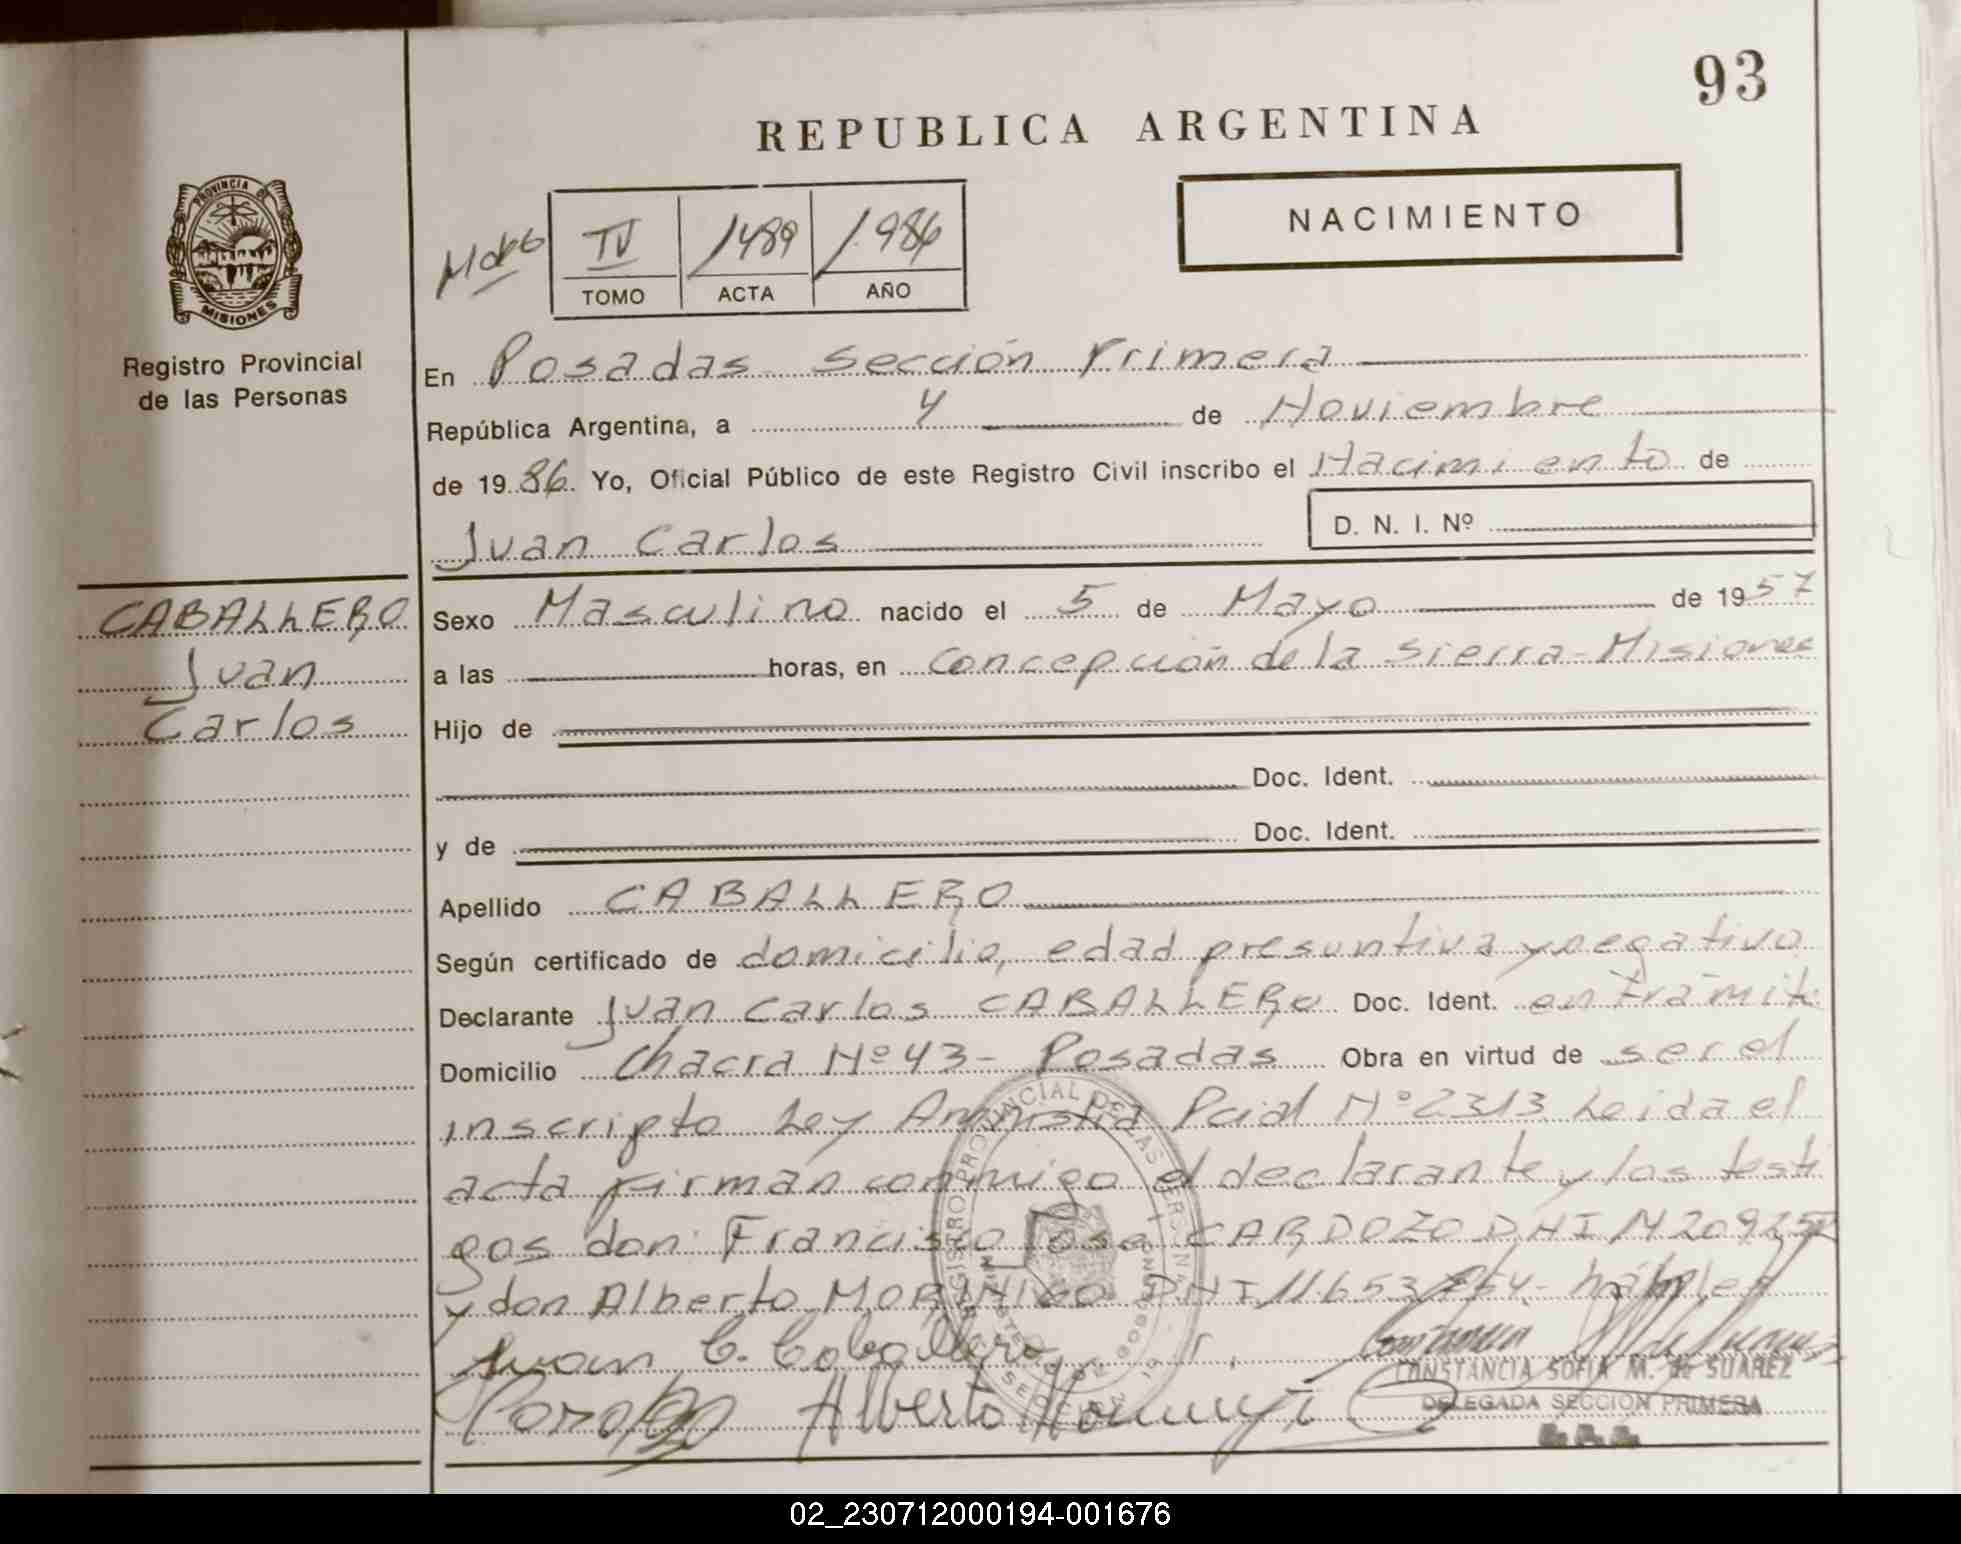 93
REPUBLICA ARGENTINA
NACIMIENTO
IV 1489 1986
TOMO ACTA AÑO
PROVINCIA DE
MISIONES
Registro Provincial
de las Personas
En Posadas Sección Primera
República Argentina, a 4 de Noviembre
de 1986 Yo, Oficial Público de este Registro Civil inscribo el Nacimiento de
Juan Carlos D. N. I. Nº
CABALLERO
Juan
Carlos
Sexo Masculino nacido el 5 de Mayo de 1957
a las horas, en Concepción de la Sierra - Misiones
Hijo de
Doc. Ident.
y de Doc. Ident.
Apellido CABALLERO
Según certificado de domicilio, edad presuntiva y negativo
Declarante Juan Carlos CABALLERO Doc. Ident. en trámite
Domicilio Chacra Nº 43 - Posadas Obra en virtud de ser el
inscripto Ley Amnistia Pcial Nº 2313 Leida el
acta firman conmigo el declarante y los testi
gos don Francisco José CARDOZO DNI
y don Alberto DNI 11653 - hábiles
Juan C. Caballero
Alberto
CONSTANCIA SOFIA M. de SUAREZ
DELEGADA SECCION PRIMERA
02_230712000194-001676